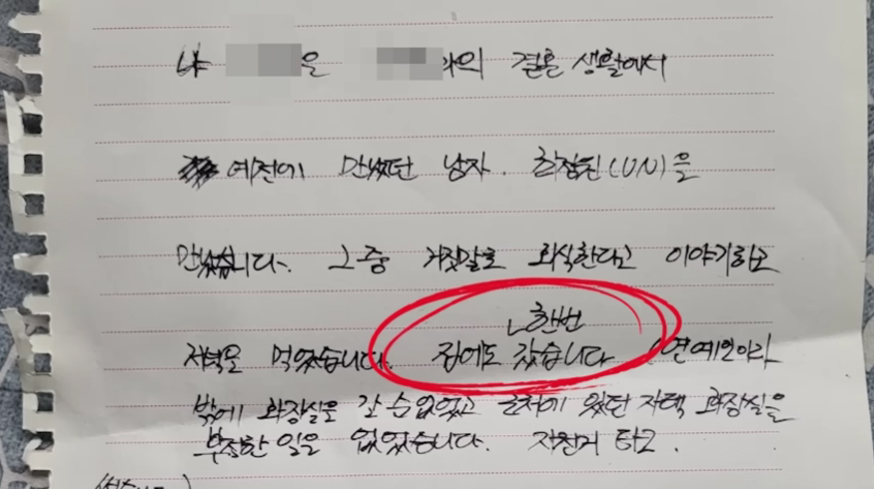 나 을 와의 결혼 생활에서
예전에 만났던 남자. 최정원(UN)을
만났습니다. 그 중 거짓말로 회식한다고 이야기하고
한번
저녁을 먹었습니다. 집에도 갔습니다 (연예인이라
밖에 화장실을 갈 수 없었고 근처에 있던 자택 화장실을
부정한 일은 없었습니다. 자전거 타고.